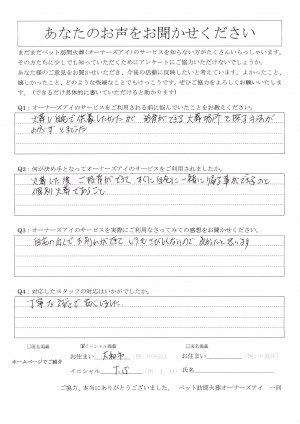 あなたのお声をお聞かせください
まだまだペット訪問火葬(オーナーズアイ)のサービスを知らない方がたくさんいらっしゃいます。
その方たちに少しでも知っていただくためにアンケートにご協力いただけないでしょうか。
あなた様のご意見をお聞かせいただき、今後の活動に反映したいと考えています。よかったこと、
嬉しかったこと、どのような些細なことでもけっこうです。ぜひご協力をよろしくお願いいたしま
す。（できるだけ具体的に書いていただけると助かります）
Q1：オーナーズアイのサービスをご利用される前に悩んでいたことをお教えください。
火葬し自宅で供養したかったが
Q2：何が決め手となってオーナーズアイのサービスをご利用されましたか。
火葬した後 ご拾骨ができて すぐに自宅に一緒に帰る事ができるのと
個別火葬であること
Q3：オーナーズアイのサービスを実際にご利用なさってみての感想をお聞かせください。
自宅の近くでお別れができて
Q4：対応したスタッフの対応はいかがでしたか。
丁寧な対応で良くしました
□実名掲載
☑イニシャル掲載
□匿名掲載
ホームページでご紹介
お住まい 大和市 (例：中央区)
お住まい (例：中央区)
イニシャル T.S (例：J.H)
氏名
ご協力、本当にありがとうございました。 ペット訪問火葬オーナーズアイ 一同